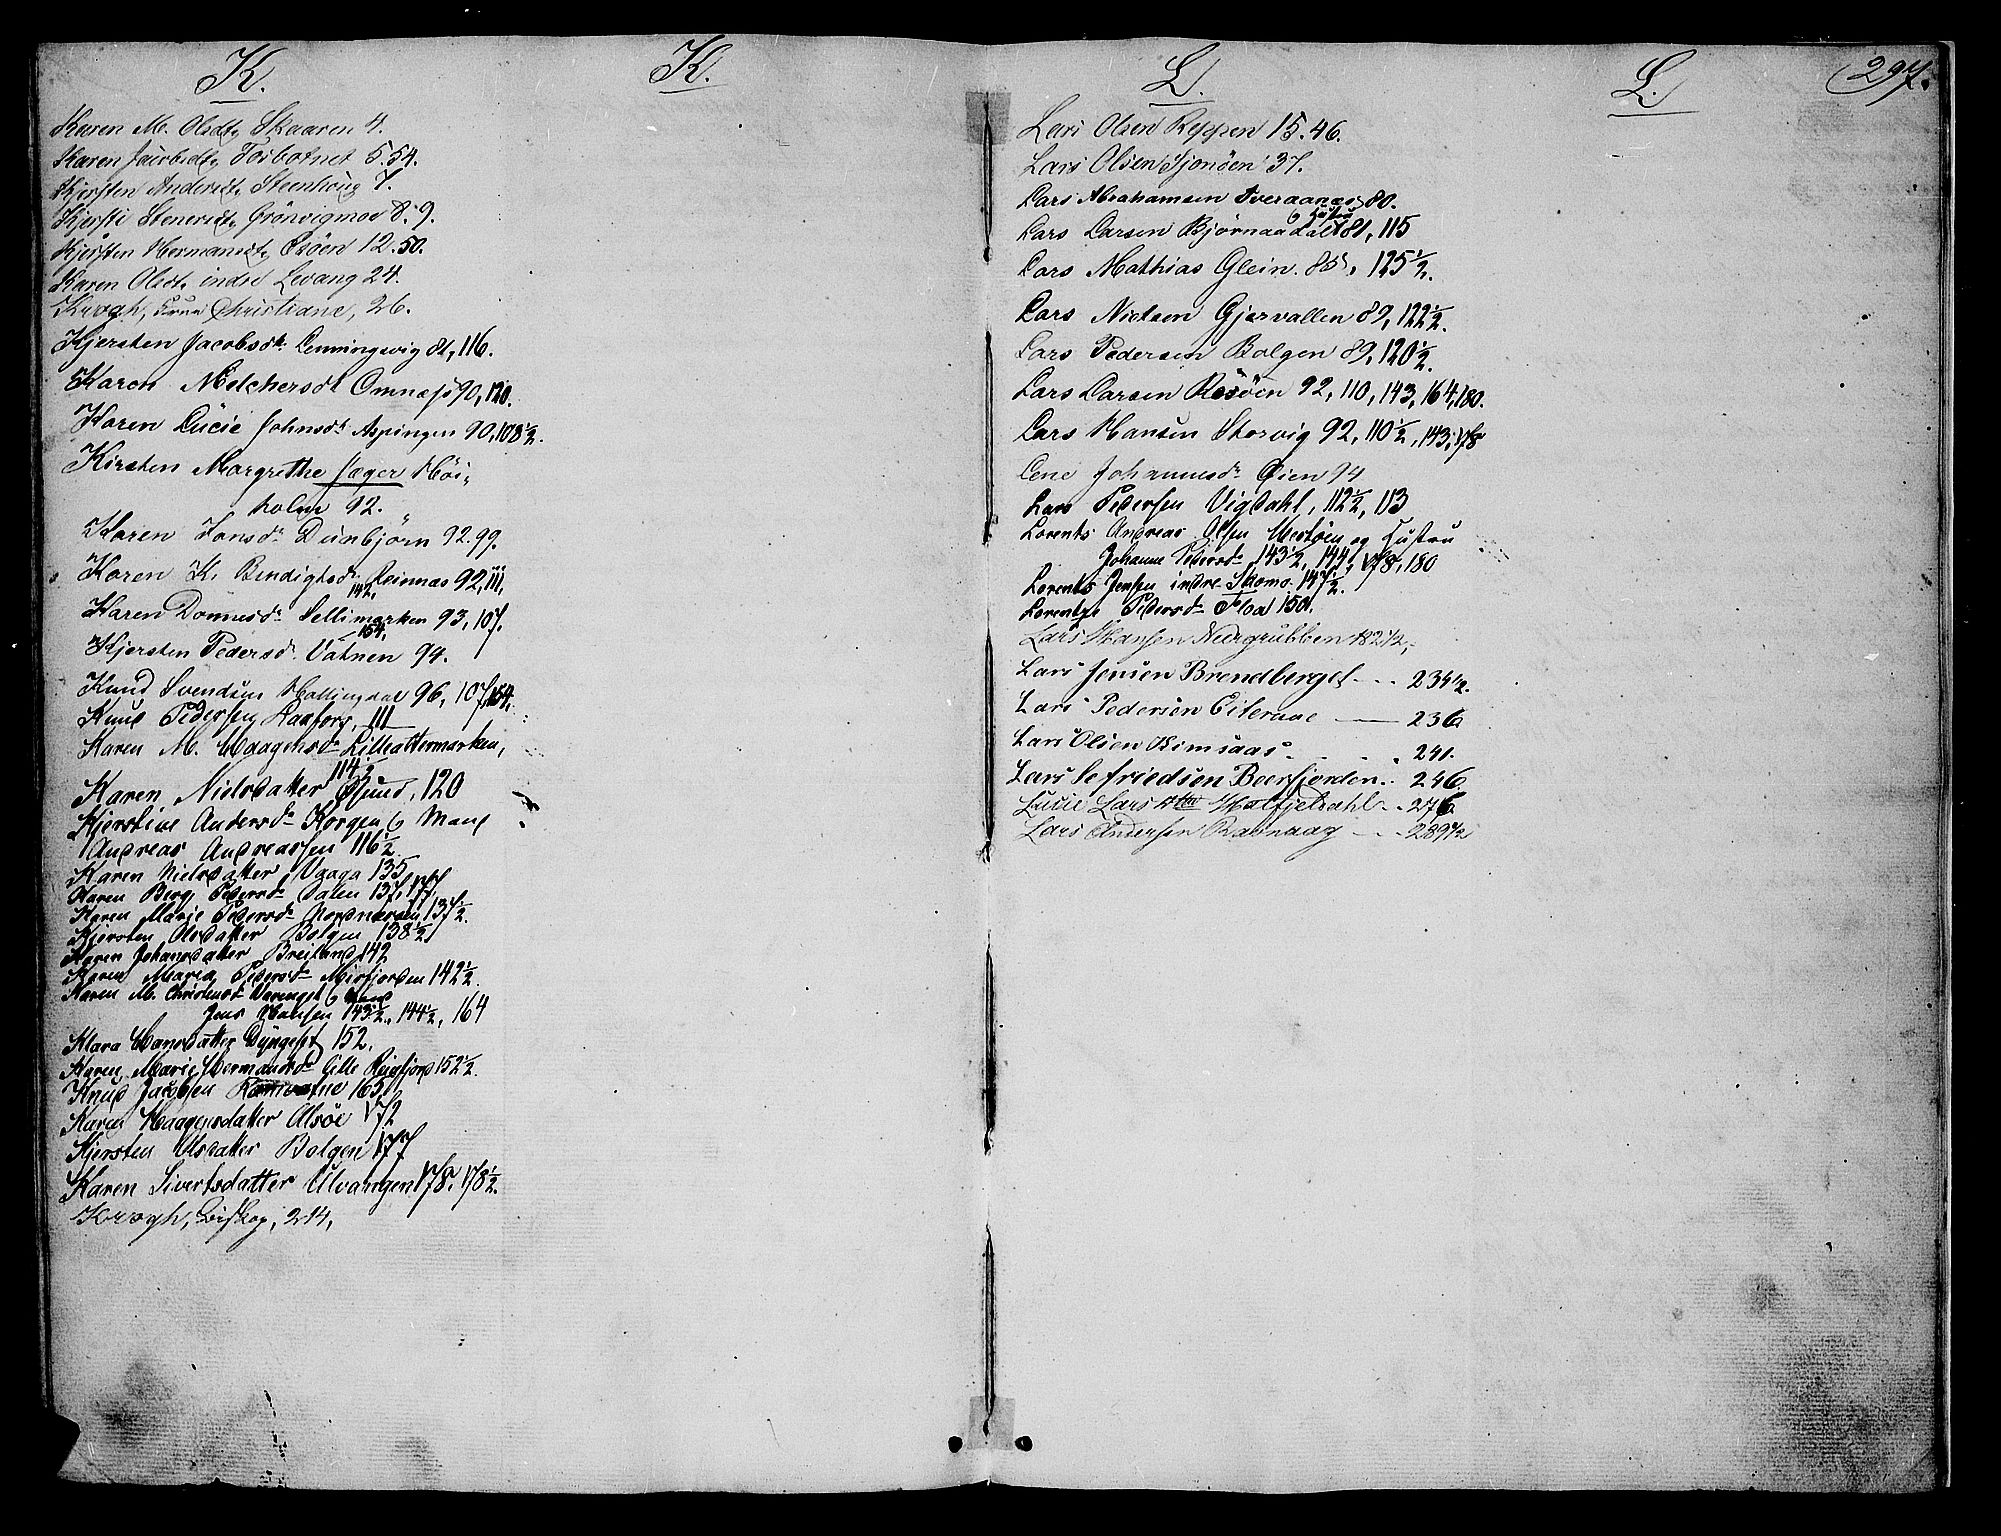 K.
Karen M. Olsdtr Skaaren 4.
Karen Jacobsdtr Forbotnet 5.54.
Kjersten Andersdtr Steenhoug 7.
Kjersti Stenersdtr Grönvigmoe 8.9.
Kjersten Hermansdtr Exöen 12.50.
Karen Olsdtr indre Levang 24.
Krogh, Fru Christiane, 26.
Kjersten Jacobsdr Lenningsvig 81, 116.
Karen Melchersdr Omnæs 90, 120.
Karen Lücie Johnsdr Aspingen 90, 108½.
Kirsten Margrethe Jæger Höi-
holm 92.
Karen Jonsdr Dünbjörn 92.99.
Karen K. Bendigtsdr Reinnæs 92, 111,
142,
Karen Donnesdr Sellimarken 93, 107.
154,
Kjersten Pedersdr Vatnen 94.
Knud Svendsen Hallingdal 96, 107, 154,
Knud Pedersen Laafors, 111
Karen M. Haagensdr Lilleattermarken,
114½
Karen Nielsdatter Ösund, 120
Kjerstine Andersdr Korgen og Mand
Andreas Andreassen 116½
Karen Nielsdatter Vaaga 135
Karen Berg Pedersdr Dalen 137, 177
Karen Marie Pedersdr Nordnæsen 137½.
Kjersten Olsdatter Bolgen 138½
Karen Johansdatter Breiland 142
Karen Maria Pedersdr Misfjorden 142½
Karen M. Christensdr Varenget og Mand
Jens Hansen 143½, 144½, 164
Klara Hansdatter Dyngest 152.
Karen Marie Hermansdr Lille Røgfjord 152½.
Knud Jacobsen 165
Karen Haagensdatter Alsöe 172
Kjersten Olsdatter Bolgen 177
Karen Sivertsdatter Ulvangen 178. 178½.
Krogh, Biskop, 214,
K.
L.
Lars Olsen Reppen 15.46.
Lars Olsen Sjonöen 37.
Lars Abrahamsen Tveraanæs 80.
og Hustru
Lars Larsen Bjørnaadalt 81, 115
Lars Mathias Glein. 85, 125½.
Lars Nielsen Gjervallen 89, 122½.
Lars Pedersen Bolgen 89, 120½.
Lars Larsen Resöen 92, 110, 143, 164, 180.
Lars Hansen Storvig 92, 110½, 143, 178
Lene Johannesdr Øien 94
Lars Pedersen Vigdahl, 112½, 113
Lorents Andreas Olsen Mestöen og Hustru
Johanna Pedersdr 143½, 144, 178, 180
Lorents Jensen indre Skomo. 147½.
Lorentze Pedersdr Floa 150.
Lars Hansen Nedrgrubben 182½,
Lars Jensen Brendberget - - - 234½.
Lars Pedersen Eiteraae —— 236
Lars Olsen Rimsaas - - - 241.
Lars Sefriedsen Beerfjorden.. 246.
Lucie Larsdtr Halfjeldahl - . 276.
Lars Andersen Ravnaag - - - 289½
L.
297.